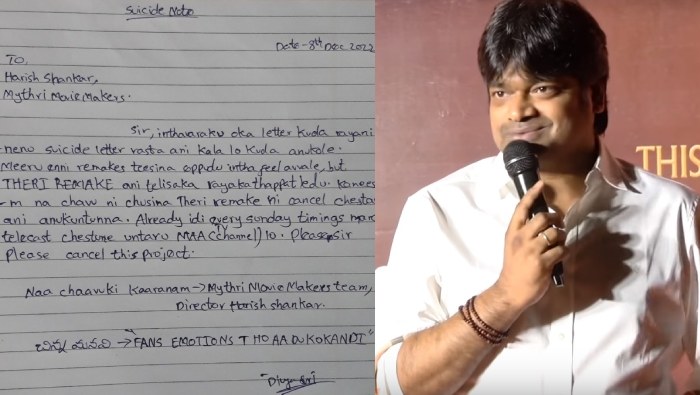 Suicide Note
Date - 8th Dec 2022
To,
Harish Shankar,
Mythri Movie Makers.
Sir, inthavaraku oka letter kuda rayani
nenu suicide letter rasta ani kala lo kuda anukole.
Meeru enni remakes teesina eppudu intha feel avvale, but
THERI REMAKE ani telisaka rayaka thappatledu. Kanees
-m na chavu ni chusina Theri remake ni cancel chestar
ani anukuntunna. Already idi every sunday timings mari
telecast chestune untaru MAA (channel) lo. Please sir
Please cancel this project.
Naa chaavuki kaaranam → Mythri Movie Makers team,
Director Harish shankar.
చిన్న మనవి → "FANS EMOTIONS THO AADUKOKANDI"
THIS